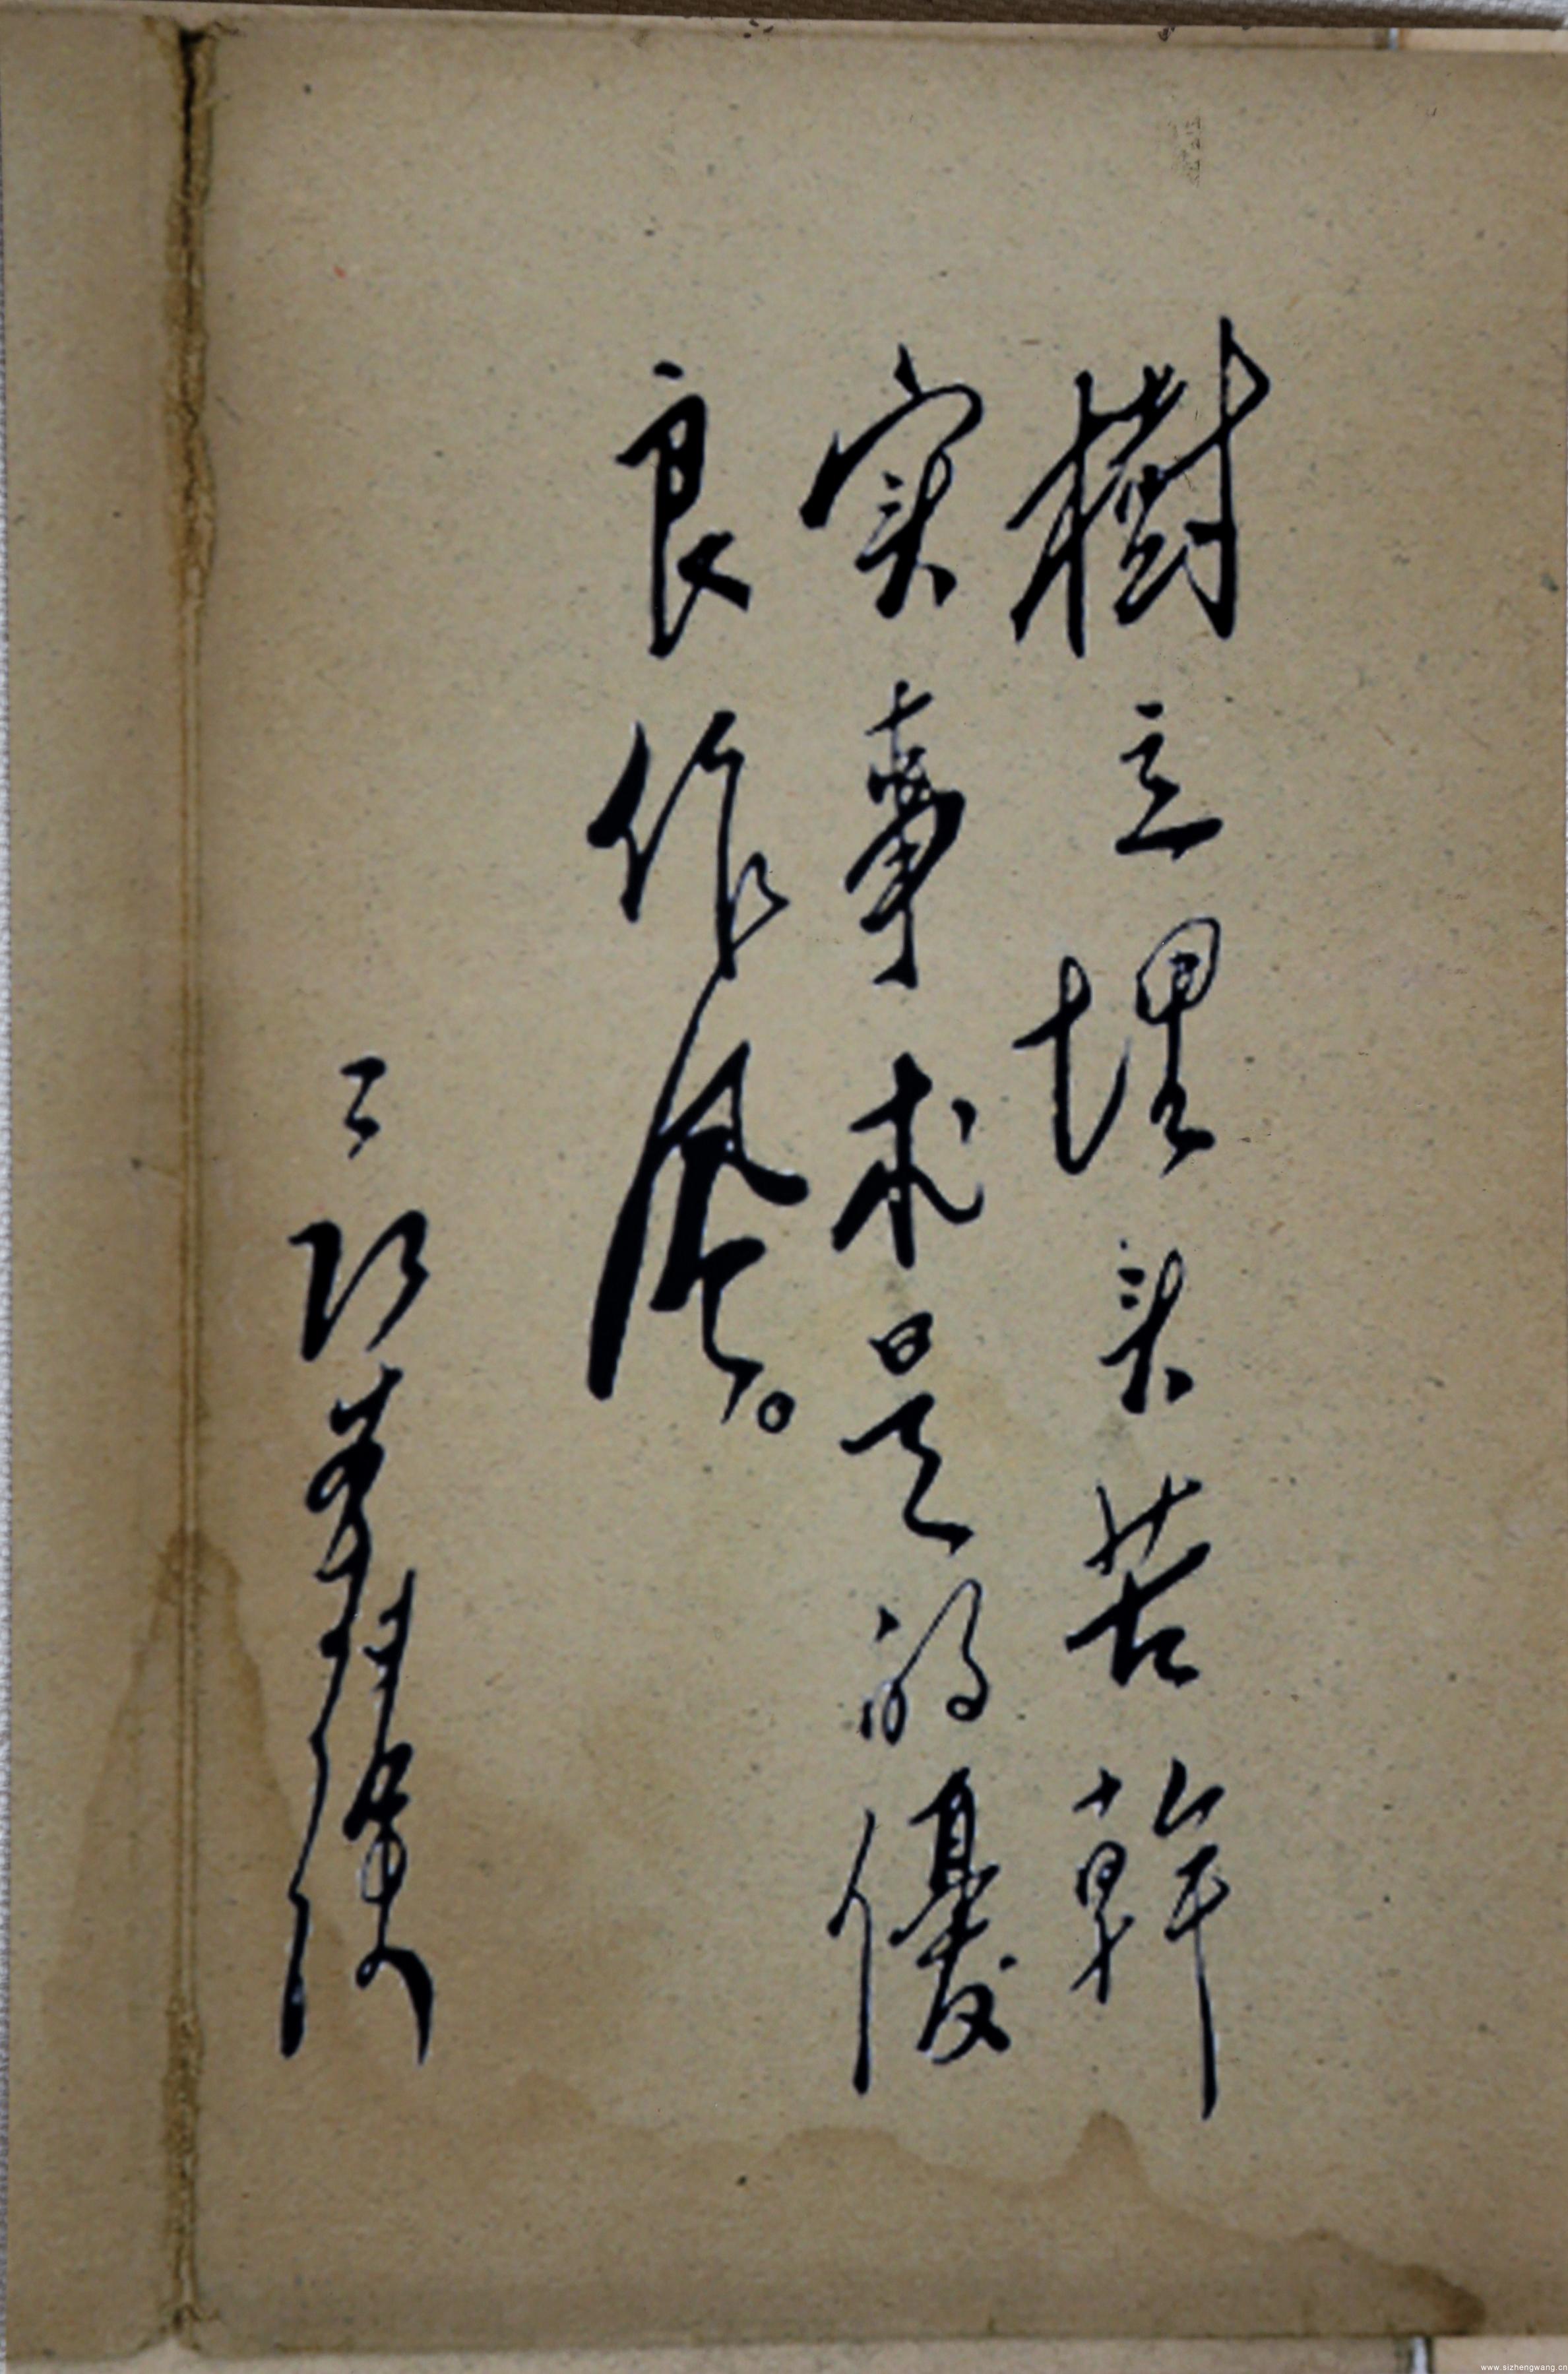 樹立埋头苦幹
实事求是的優
良作风。
www.sizhengwang.cn